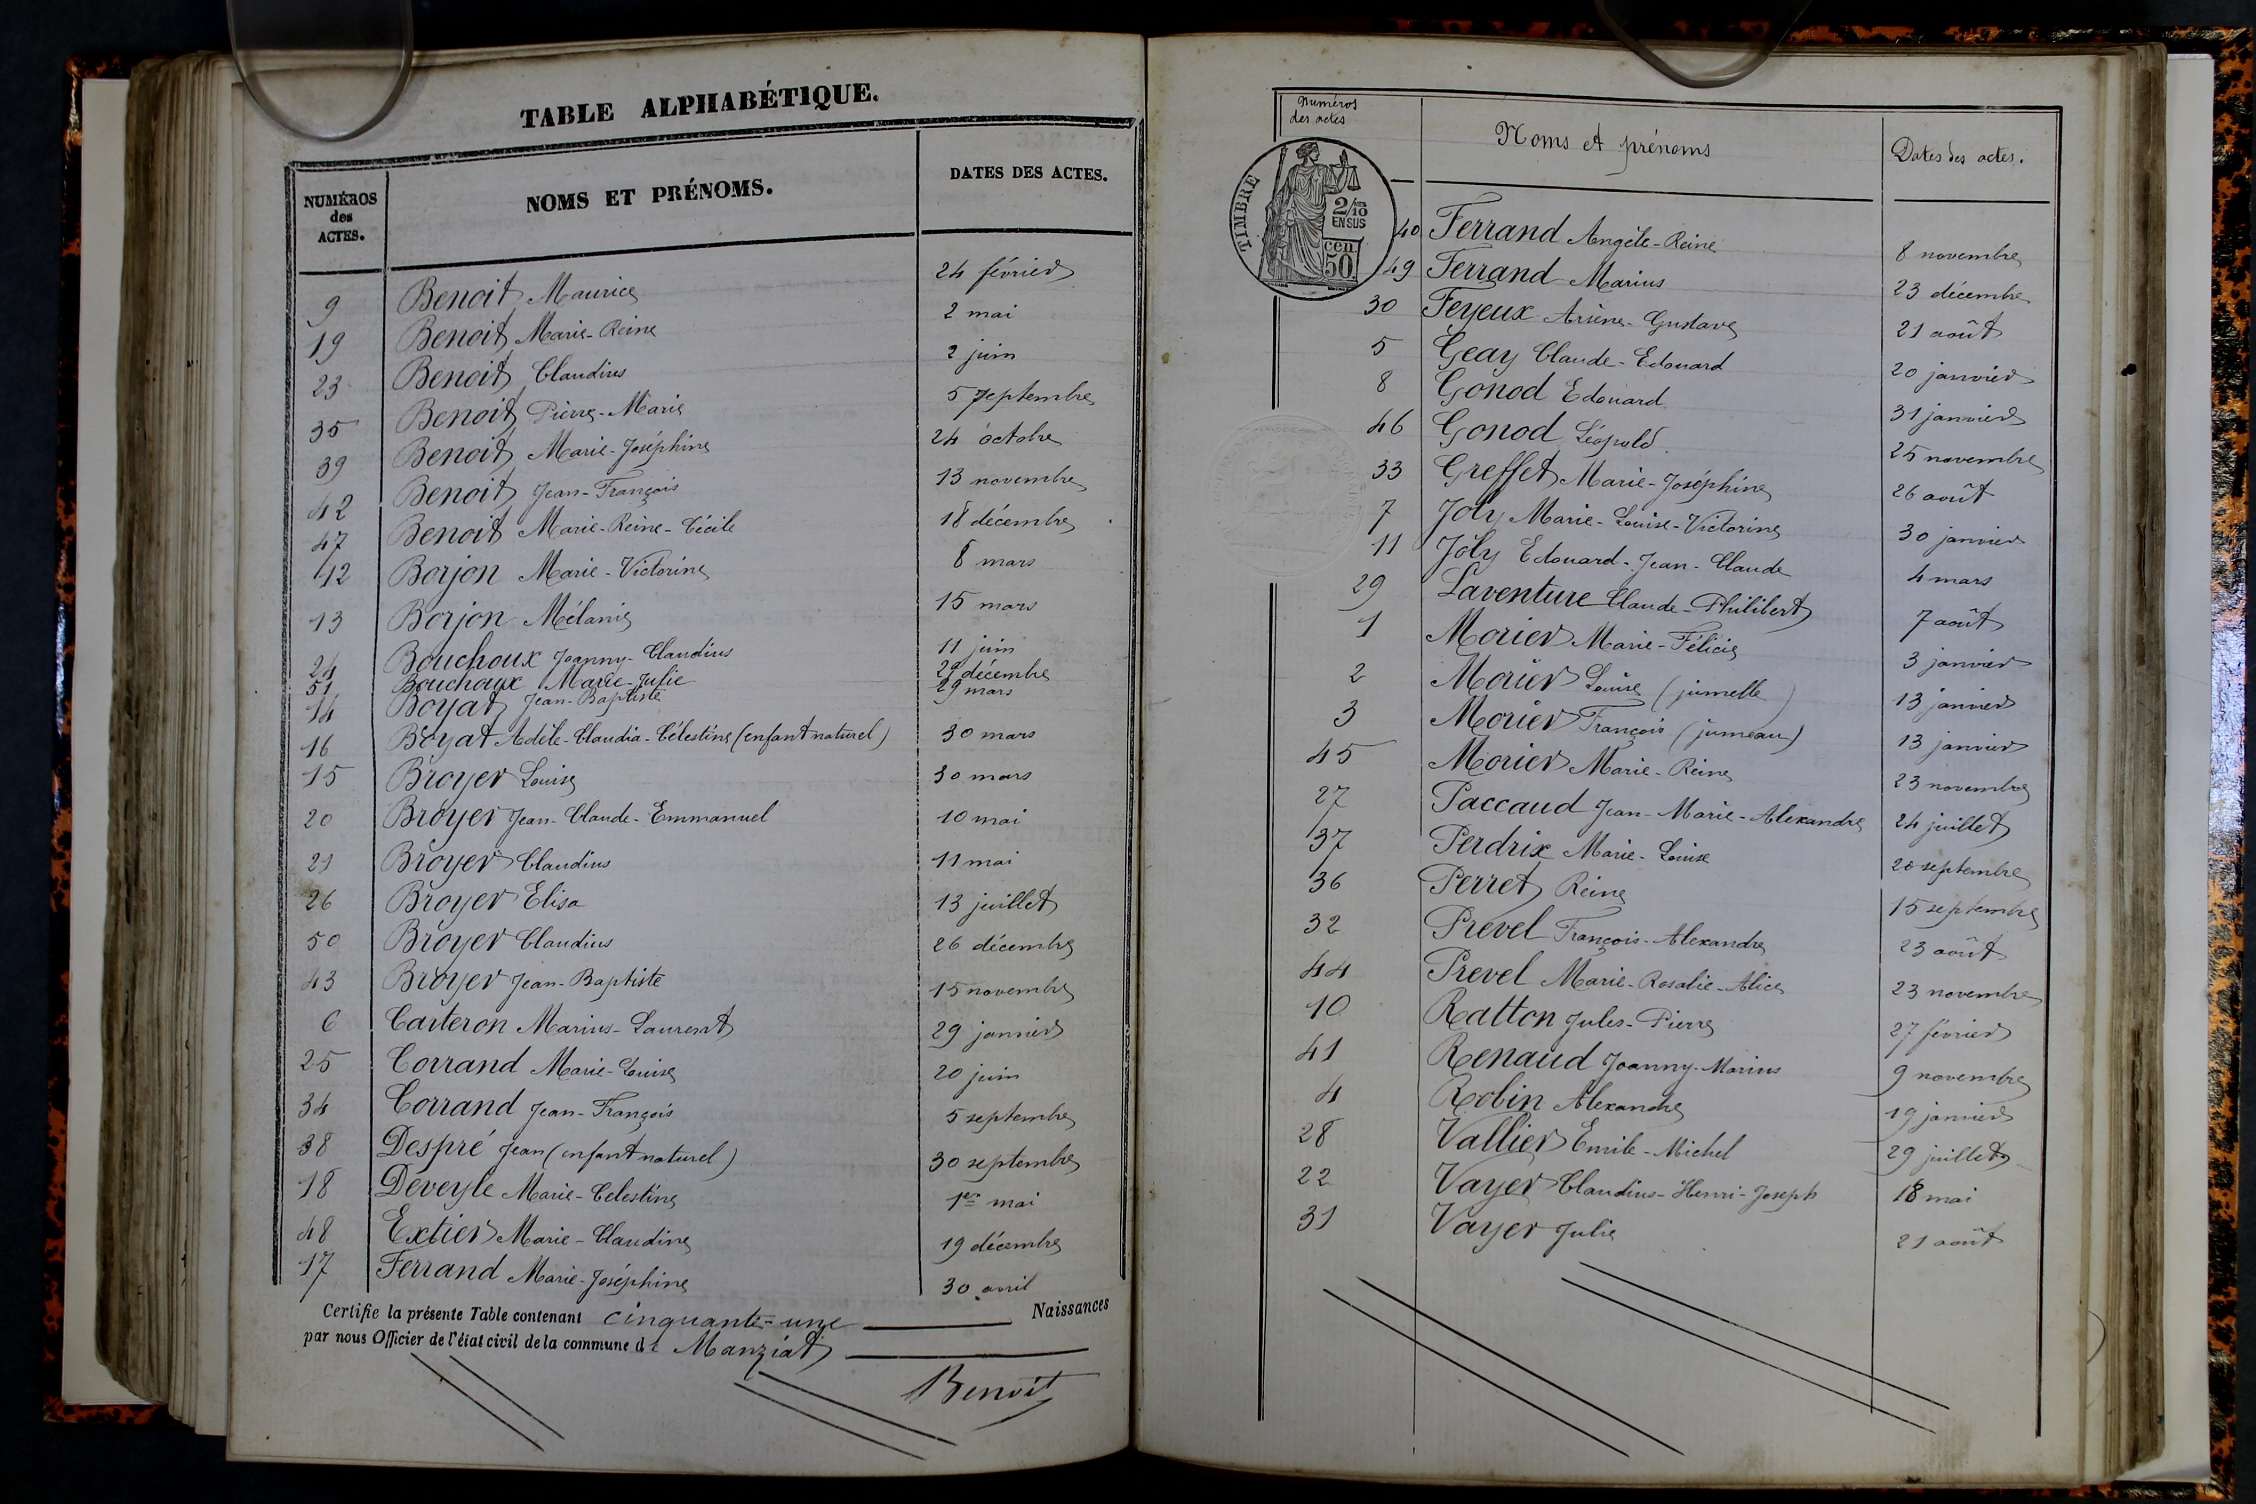 TABLE ALPHABÉTIQUE.
NUMÉROS des ACTES. NOMS ET PRÉNOMS. DATES DES ACTES.
9 Benoit Maurice 24 février
19 Benoit Marie-Reine 2 mai
23 Benoit Claudius 2 juin
35 Benoit Pierre-Marie 5 septembre
39 Benoit Marie-Joséphine 24 octobre
42 Benoit Jean-François 13 novembre
47 Benoit Marie-Reine-Cécile 18 décembre
12 Borjon Marie-Victorine 8 mars
13 Borjon Mélanie 15 mars
24 Bouchoux Joanny-Claudius 11 juin
51 Bouchoux Marie-Julie 27 décembre
14 Boyat Jean-Baptiste 29 mars
16 Boyat Adèle-Claudia-Célestine (enfant naturel) 30 mars
15 Broyer Louise 30 mars
20 Broyer Jean-Claude-Emmanuel 10 mai
21 Broyer Claudius 11 mai
26 Broyer Elisa 13 juillet
50 Broyer Claudius 26 décembre
43 Broyer Jean-Baptiste 15 novembre
6 Carteron Marius-Laurent 29 janvier
25 Corrand Marie-Louise 20 juin
34 Corrand Jean-François 5 septembre
38 Despré Jean (enfant naturel) 30 septembre
18 Deveyle Marie-Celestine 1er mai
48 Extier Marie-Claudine 19 décembre
17 Ferrand Marie-Joséphine 30 avril
Certifie la présente Table contenant cinquante-une Naissances
par nous Officier de l'état civil de la commune de Manziat
Benoit
Numéros des actes Noms et prénoms Dates des actes.
TIMBRE
2/10 EN SUS
50 cen
40 Ferrand Angèle-Reine 8 novembre
49 Ferrand Marius 23 décembre
30 Feyeux Arsène-Gustave 21 août
5 Geay Claude-Edouard 20 janvier
8 Gonod Edouard 31 janvier
46 Gonod Léopold 25 novembre
33 Greffet Marie-Joséphine 26 août
7 Joly Marie-Louise-Victorine 30 janvier
11 Joly Edouard-Jean-Claude 4 mars
29 Laventure Claude-Philibert 7 août
1 Morier Marie-Félicie 3 janvier
2 Morier Louise (jumelle) 13 janvier
3 Morier François (jumeau) 13 janvier
45 Morier Marie-Reine 23 novembre
27 Paccaud Jean-Marie-Alexandre 24 juillet
37 Perdrix Marie-Louise 20 septembre
36 Perret Reine 15 septembre
32 Prevel François-Alexandre 23 août
44 Prevel Marie-Rosalie-Alice 23 novembre
10 Ratton Jules-Pierre 27 février
41 Renaud Joanny-Marius 9 novembre
4 Robin Alexandre 19 janvier
28 Vallier Emile-Michel 29 juillet
22 Vayer Claudius-Henri-Joseph 18 mai
31 Vayer Julie 21 août